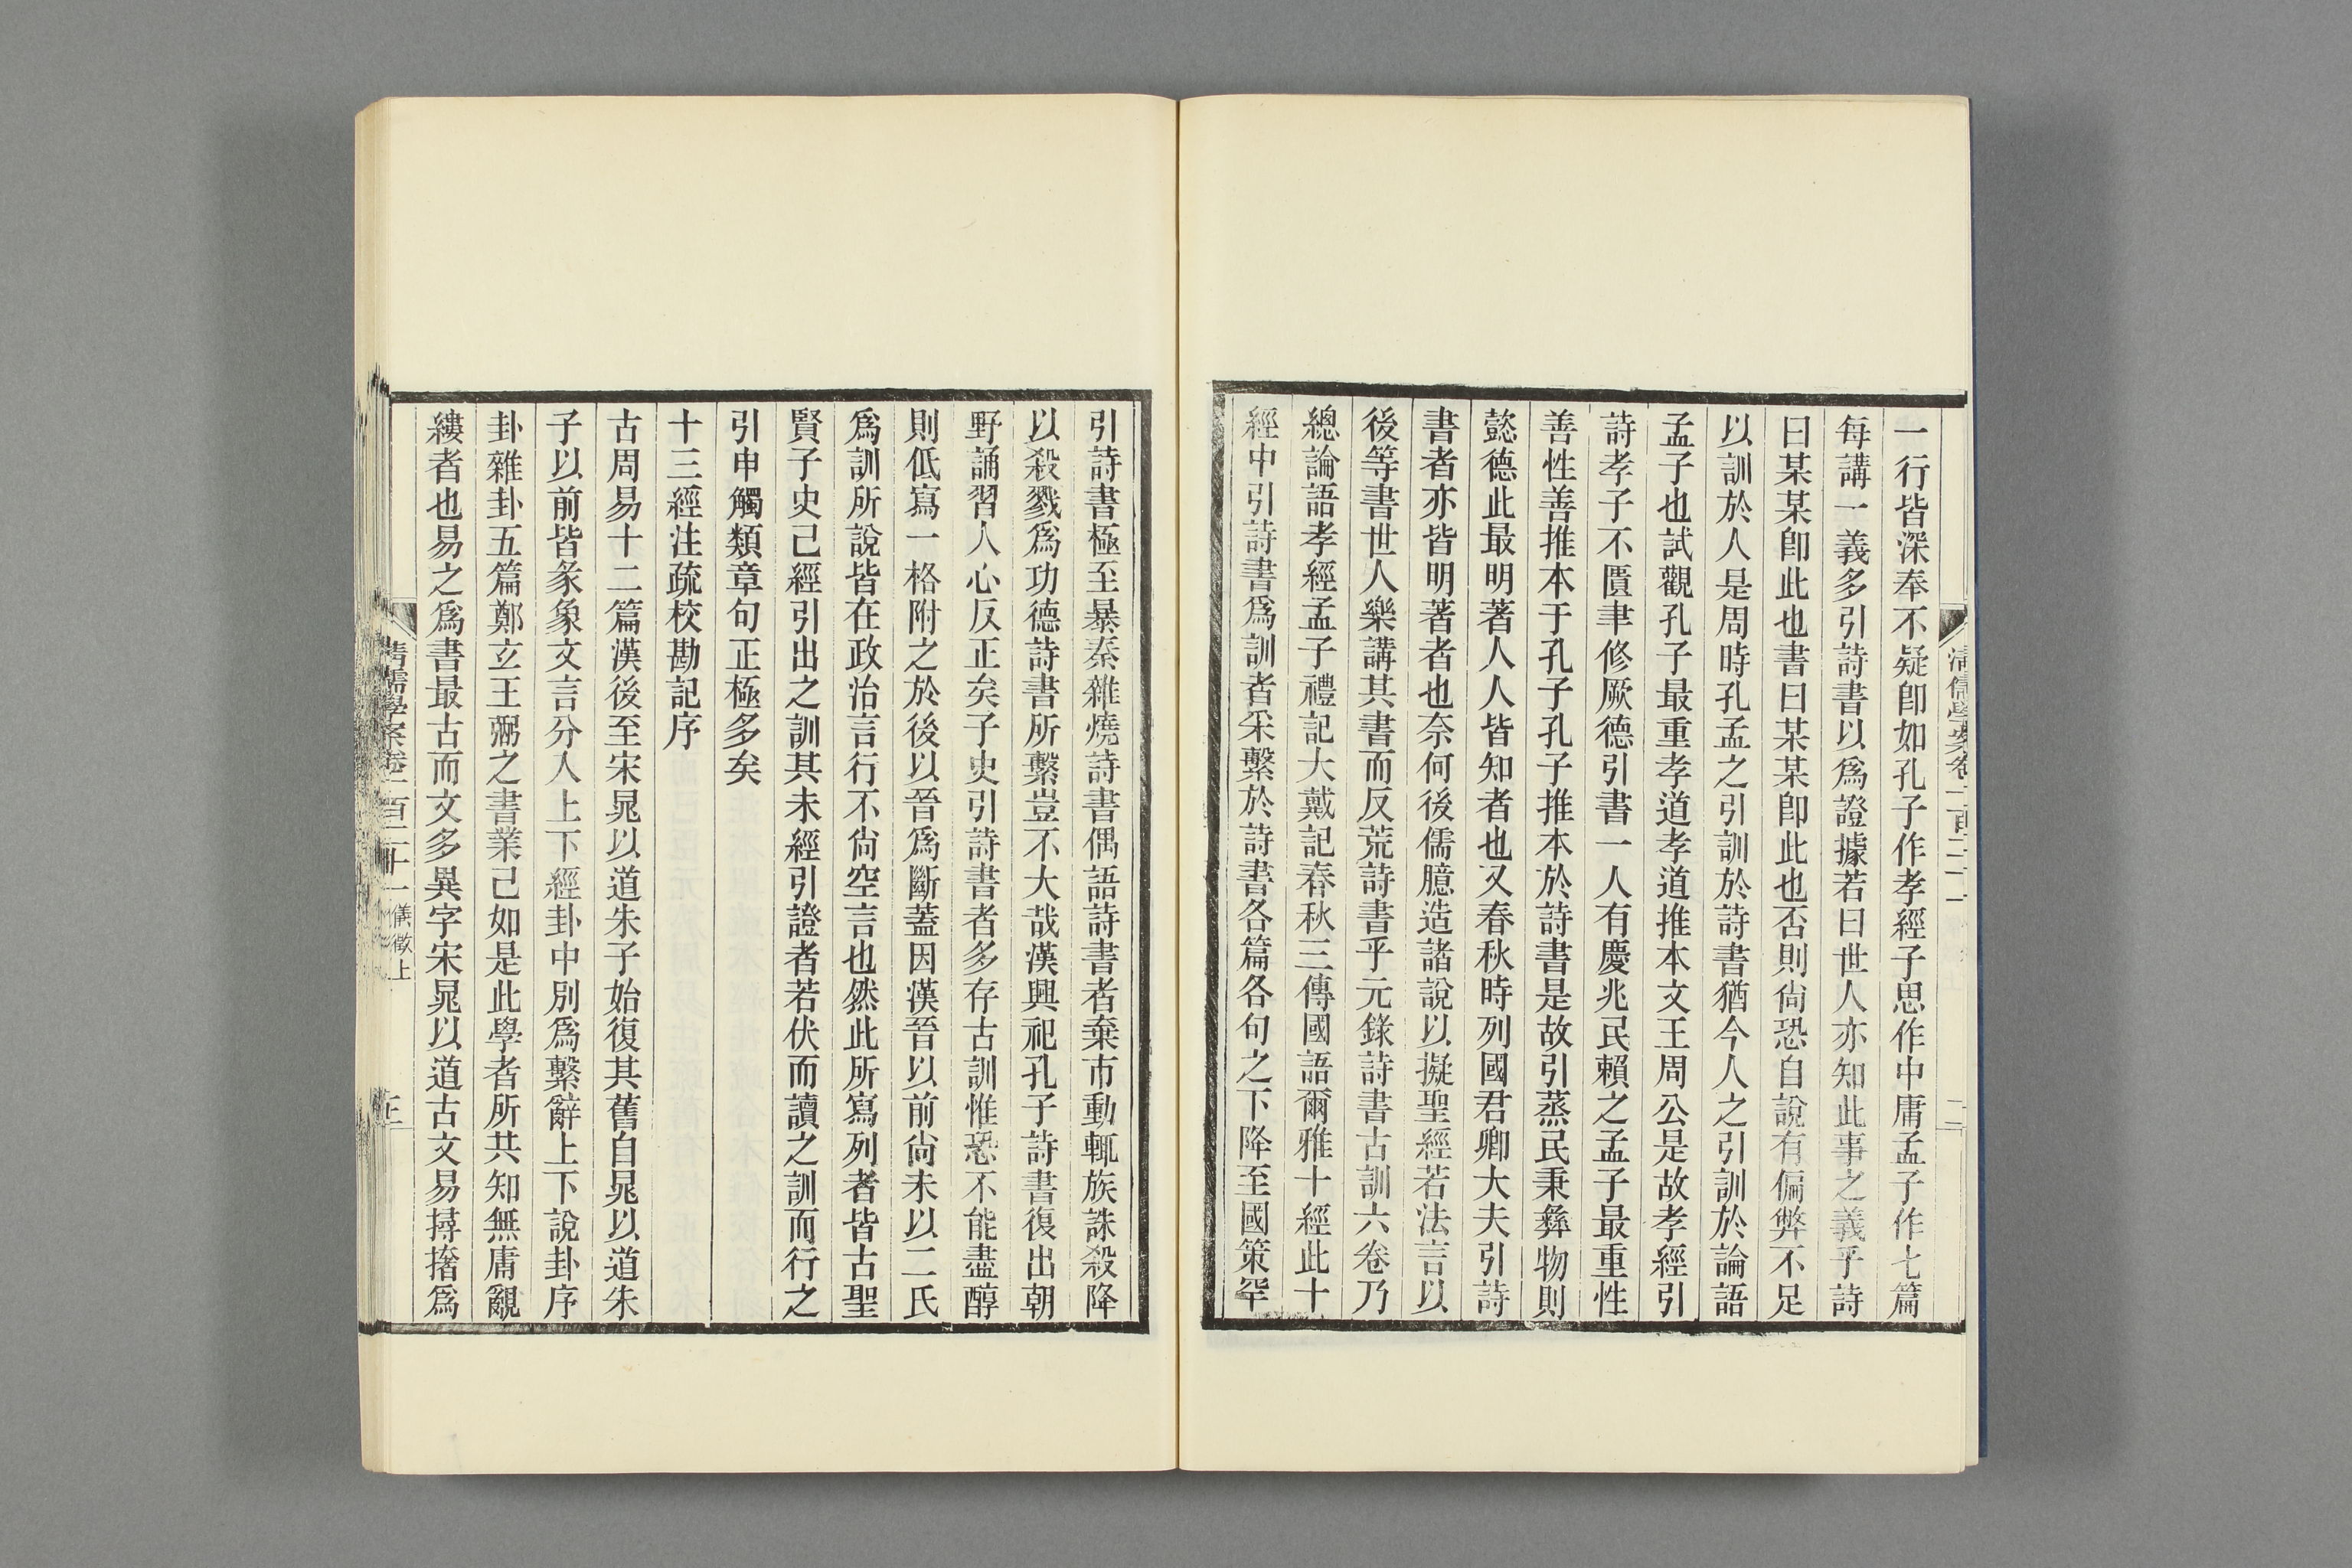 一行皆深奉不疑卽如孔子作孝經子思作中庸孟子作七篇
每講一義多引詩書以爲證據若曰世人亦知此事之義乎詩
曰某某卽此也書曰某某卽此也否則尙恐自說有偏弊不足
以訓於人是周時孔孟之引訓於詩書猶今人之引訓於論語
孟子也試觀孔子最重孝道孝道推本文王周公是故孝經引
詩孝子不匱聿修厥德引書一人有慶兆民賴之孟子最重性
善性善推本于孔子孔子推本於詩書是故引蒸民秉彝物則
懿德此最明著人人皆知者也又春秋時列國君卿大夫引詩
書者亦皆明著者也奈何後儒臆造諸說以擬聖經若法言以
後等書世人樂講其書而反荒詩書乎元錄詩書古訓六卷乃
總論語孝經孟子禮記大戴記春秋三傳國語爾雅十經此十
經中引詩書爲訓者采繫於詩書各篇各句之下降至國策罕
引詩書極至暴秦雜燒詩書偶語詩書者棄市動輒族誅殺降
以殺戮爲功德詩書所繫豈不大哉漢興祀孔子詩書復出朝
野誦習人心反正矣子史引詩書者多存古訓惟恐不能盡醇
則低寫一格附之於後以晉爲斷蓋因漢晉以前尙未以二氏
爲訓所說皆在政治言行不尙空言也然此所寫列者皆古聖
賢子史已經引出之訓其未經引證者若伏而讀之訓而行之
引申觸類章句正極多矣
十三經注疏校勘記序
古周易十二篇漢後至宋晁以道朱子始復其舊自晁以道朱
子以前皆彖象文言分入上下經卦中別爲繫辭上下說卦序
卦雜卦五篇鄭玄王弼之書業已如是此學者所共知無庸覼
縷者也易之爲書最古而文多異字宋晁以道古文易撏撦爲
清儒學案卷一百二十一 儀徵上